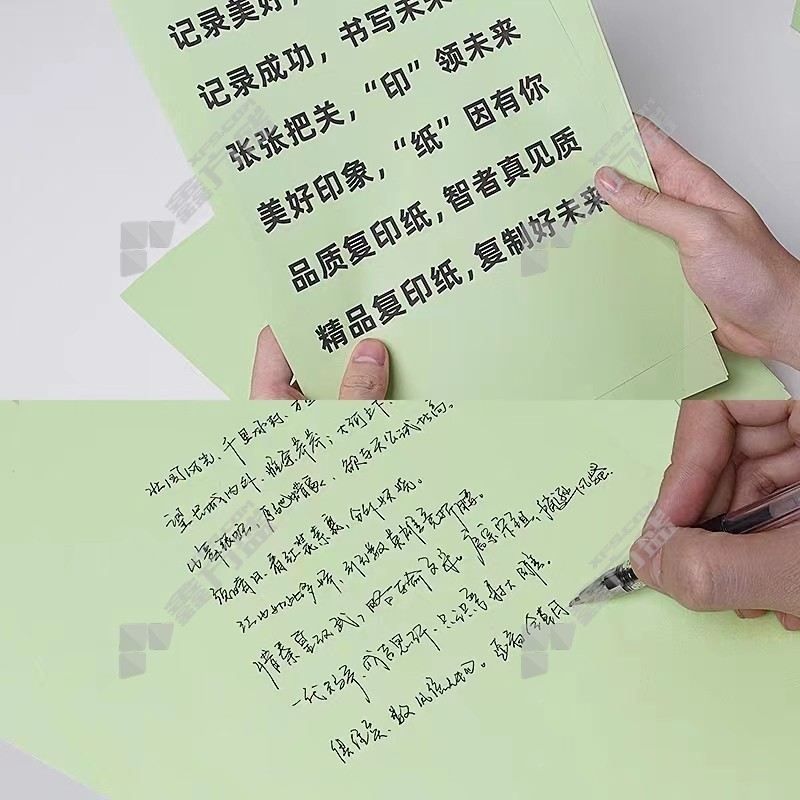 记录美好,
记录成功，书写未来
张张把关，“印”领未来
美好印象，“纸”因有你
品质复印纸，智者真见质
精品复印纸，复制好未来
北国风光、千里冰封、万
望长城内外、惟余莽莽；大河上下、
欲与天公试比高。
须晴日、看红装素裹、分外妖娆。
江山如此多娇、引无数英雄竞折腰。
惜秦皇汉武，略输文采。唐宗宋祖，稍逊风骚
一代天骄、成吉思汗、只识弯弓射大雕。
俱往矣、数风流人物。还看今朝
鑫方盛
鑫方盛
鑫方盛
鑫方盛